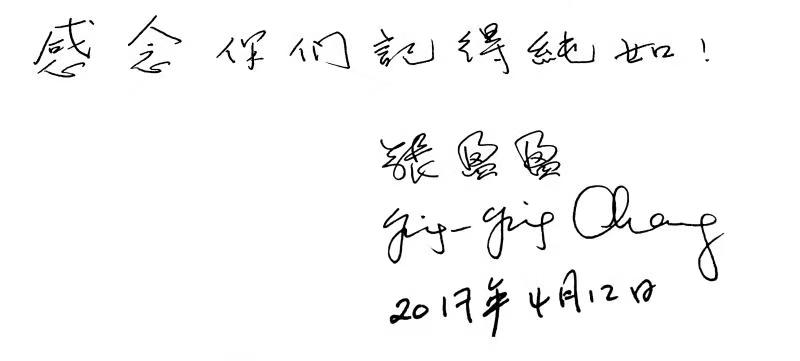 感念你们記得純如!
張盈盈
Ying-Ying Chang
2017年4月12日